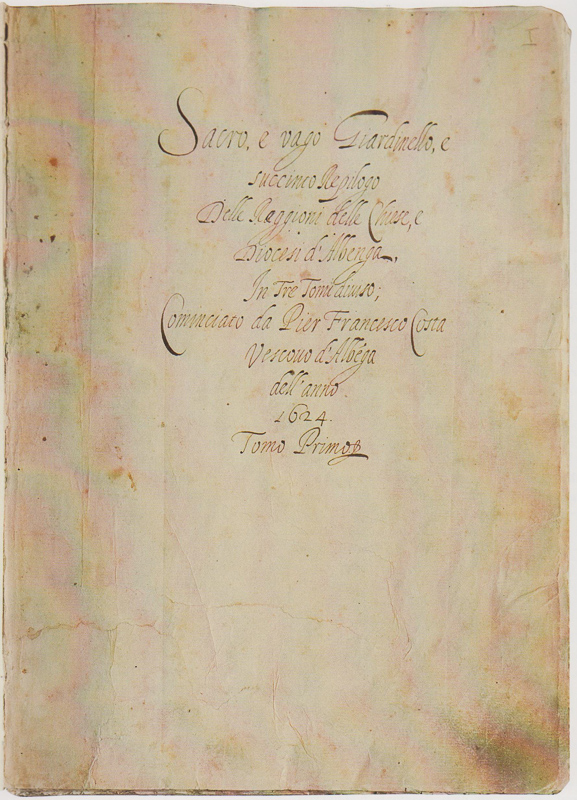 I
Sacro, e vago Giardinello, e
succinto Repilogo
Delle Raggioni delle Chiese, e
Diocesi d'Albenga,
In Tre Tomi diviso;
Cominciato da Pier Francesco Costa
Vescovo d'Albẽga
dell'anno
1624.
Tomo Primo